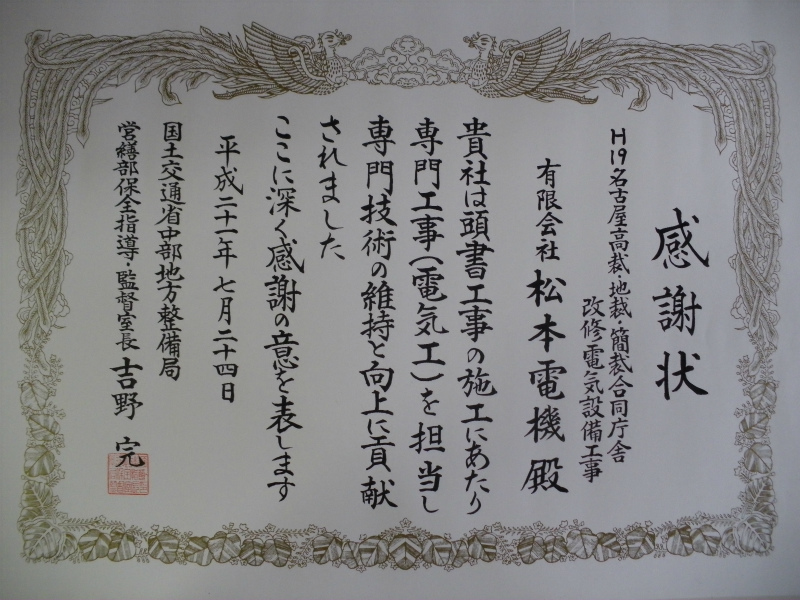 感謝状
H19名古屋高裁・地裁・簡裁合同庁舎
改修電気設備工事
有限会社 松本電機 殿
貴社は頭書工事の施工にあたり
専門工事(電気工)を担当し
専門技術の維持と向上に貢献
されました
ここに深く感謝の意を表します
平成二十一年七月二十四日
国土交通省中部地方整備局
営繕部保全指導・監督室長 吉野 完